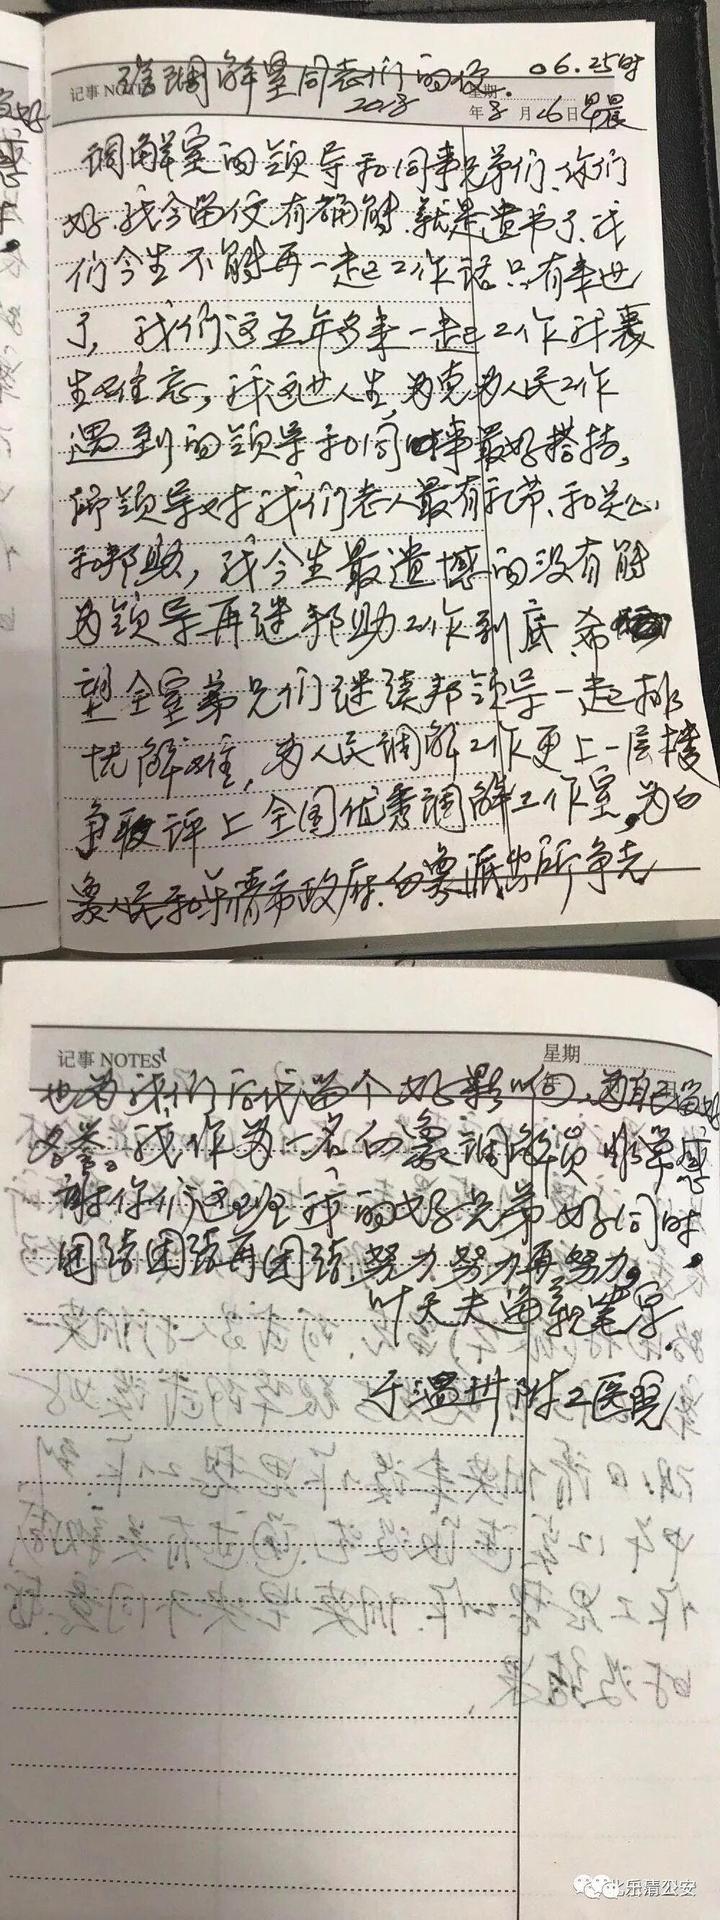 记事 NOTES 调解室同志们的 06.25时
星期
2018年8月26日早晨
调解室的领导和同事兄弟们、你们
好.我今留仅有确解.就是遗书了.我
们今生不能再一起工作话只有来世
了,我们这五年多来一起工作我裹
生难忘,我这世人生,为党为人民工作
遇到的领导和同事最好搭挡,
师领导对我们老人最有礼节、和关心
和邦助,我今生最遗憾的没有能
为领导再继邦助工作到底.希
望全室弟兄们继续邦领导一起排
忧解难,为人民调解工作更上一层楼
争取评上全国优秀调解工作室,为白
象人民和乐清市政府.白象派出所争光
记事 NOTES
星期
也为我们后代留个好影响,为自己留好
名誉。我作为一名白象调解员非常感
谢你们这班我的好兄弟好同时.
团结团结再团结.努力努力再努力。
叶天夫 亲笔字.
于温州附二医院
乐清公安